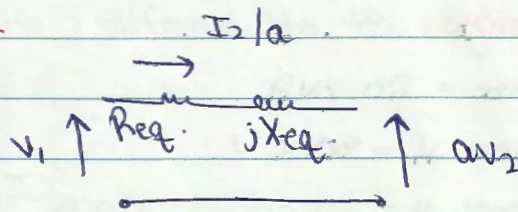 I2/a
V1 Req. jXeq. aV2